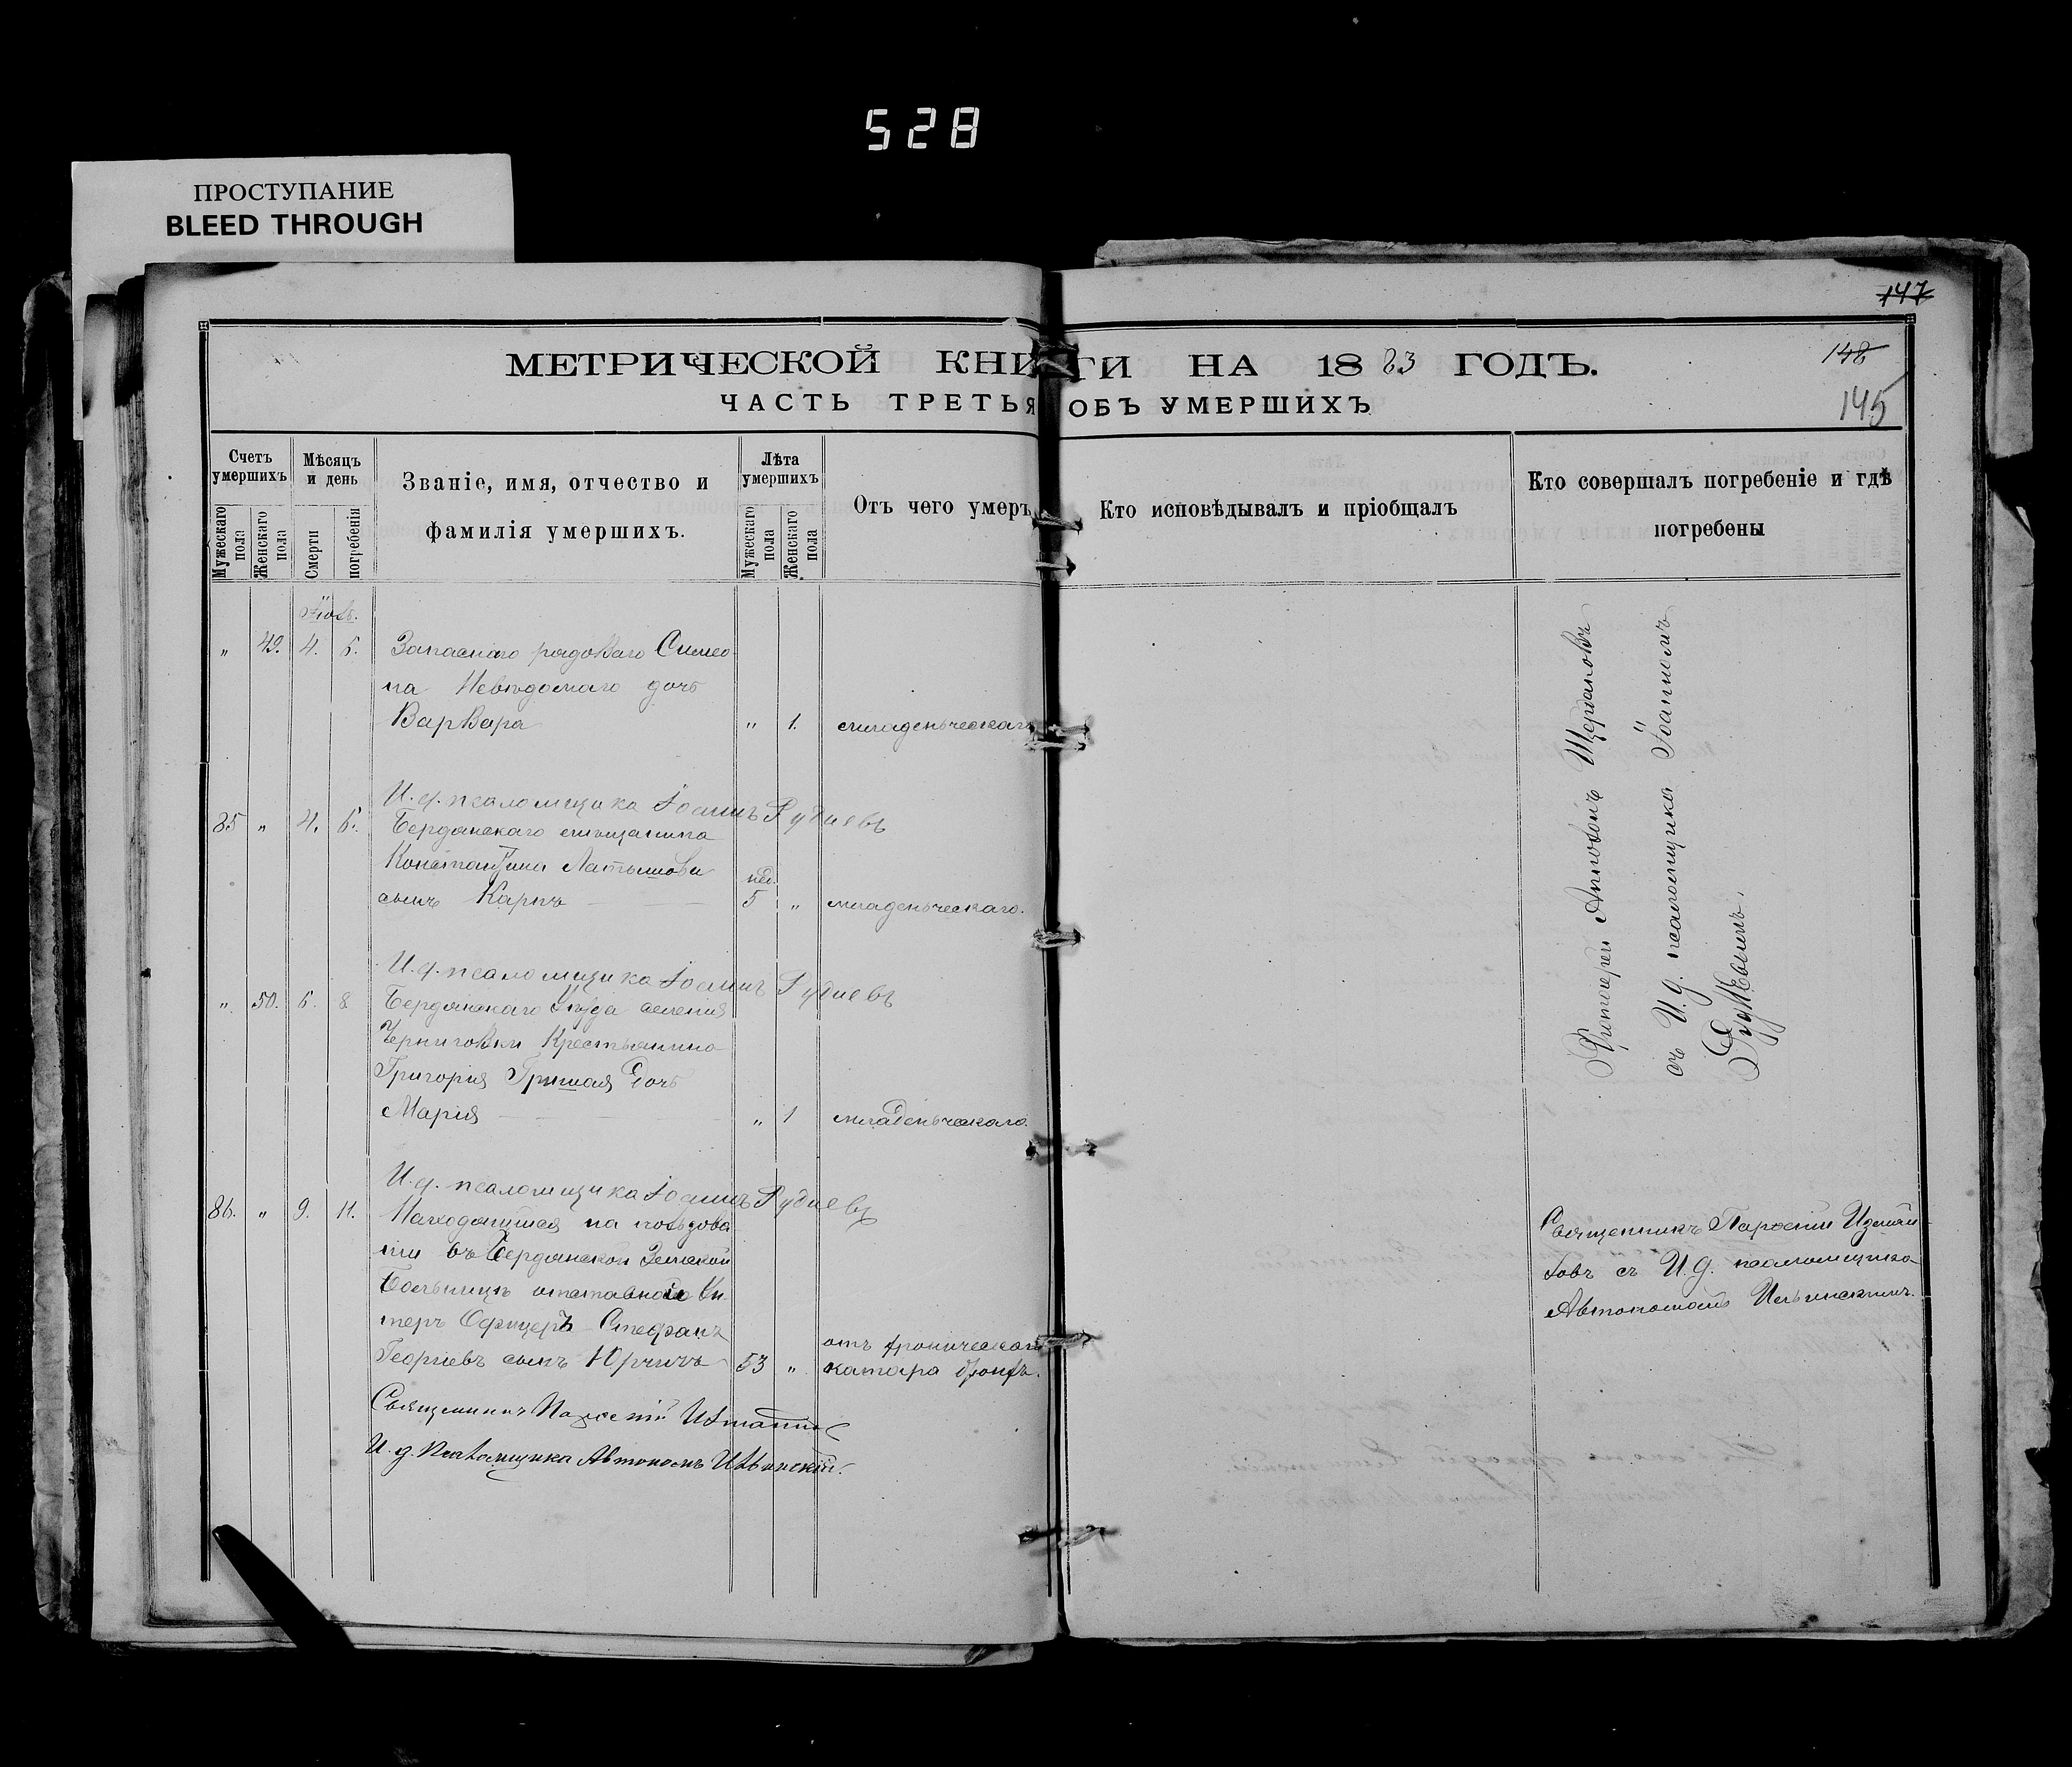 528
ПРОСТУПАНИЕ
BLEED THROUGH
147
МЕТРИЧЕСКОЙ КНИГИ НА 1883 ГОДЪ.
148
ЧАСТЬ ТРЕТЬЯ ОБЪ УМЕРШИХЪ
145
Счетъ умершихъ
Мужескаго пола
Женскаго пола
Мѣсяцъ и день
Смерти
погребенія
Званіе, имя, отчество и
фамилія умершихъ.
Лѣта умершихъ
Мужескаго пола
Женскаго пола
Отъ чего умеръ
Кто исповѣдывалъ и пріобщалъ
Кто совершалъ погребеніе и гдѣ
погребены
" 49. 4. 6. Запаснаго рядоваго Симео
на Невѣдомаго дочь
Варвара " 1. младенческаго
И. д. псаломщика Іоаннъ Рудневъ
85 " 4. 6. Бердянскаго мѣщанина
Константина Латышова
нед.
сынъ Карпъ 5 " младенческаго.
И. д. псаломщика Іоаннъ Рудневъ
" 50. 6. 8 Бердянскаго уѣзда селенія
Черниговки Крестьянина
Григорія дочь
Марія " 1 младенческаго.
И. д. псаломщика Іоаннъ Рудневъ
86. " 9. 11. Находящійся на пользова
ніи въ Бердянской Земской
Больницѣ отставной Ун
теръ Офицеръ Стефанъ
отъ хроническаго
Георгіевъ сынъ Юрчичъ 53 " катара бронхъ.
Священникъ
И. д. Псаломщика Автономъ Ильинскій.
Протоіерей Антоній Щербаковъ
съ И. д. псаломщика Іоанномъ
Рудневымъ.
Священникъ Парѳеній Измаи
ловъ съ И. д. псаломщика
Автономомъ Ильинскимъ.